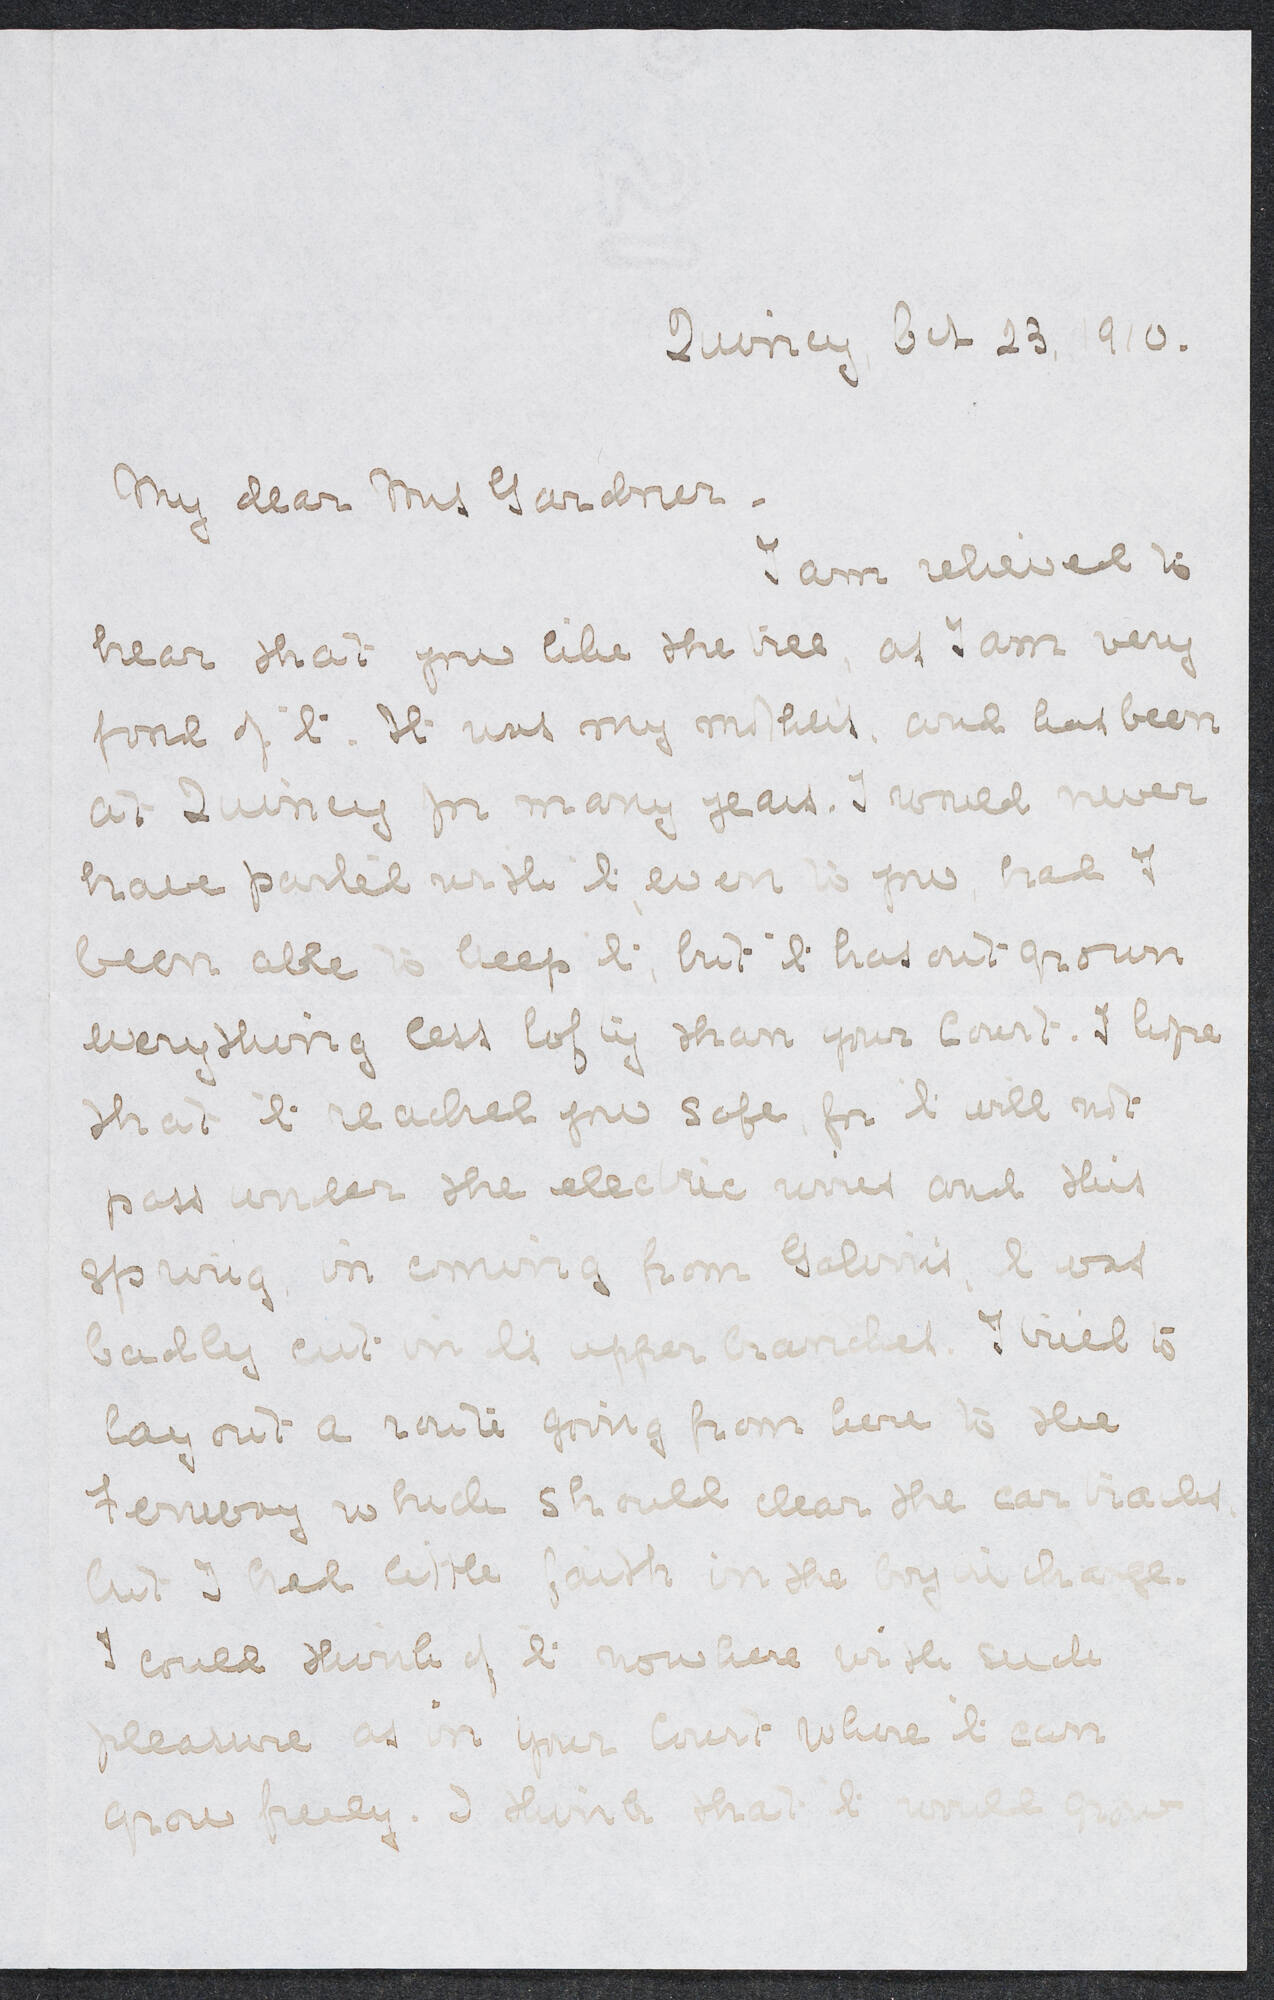 Quincy, Oct 23, 1910.
My dear Mrs Gardner -
I am relieved to
hear that you like the tree, as I am very
fond of it. It was my mother's, and has been
at Quincy for many years. I would never
have parted with it, even to you, had I
been able to keep it, but it has outgrown
everything less lofty than your Court. I hope
that it reached you safe, for it will not
pass under the electric wires and this
spring, in coming from Galvin's, it was
badly cut in its upper branches. I tried to
lay out a route going from here to the
Fenway which should clear the car tracks,
but I had little faith in the boy in charge.
I could think of it nowhere with such
pleasure as in your Court where it can
grow freely. I think that it would grow